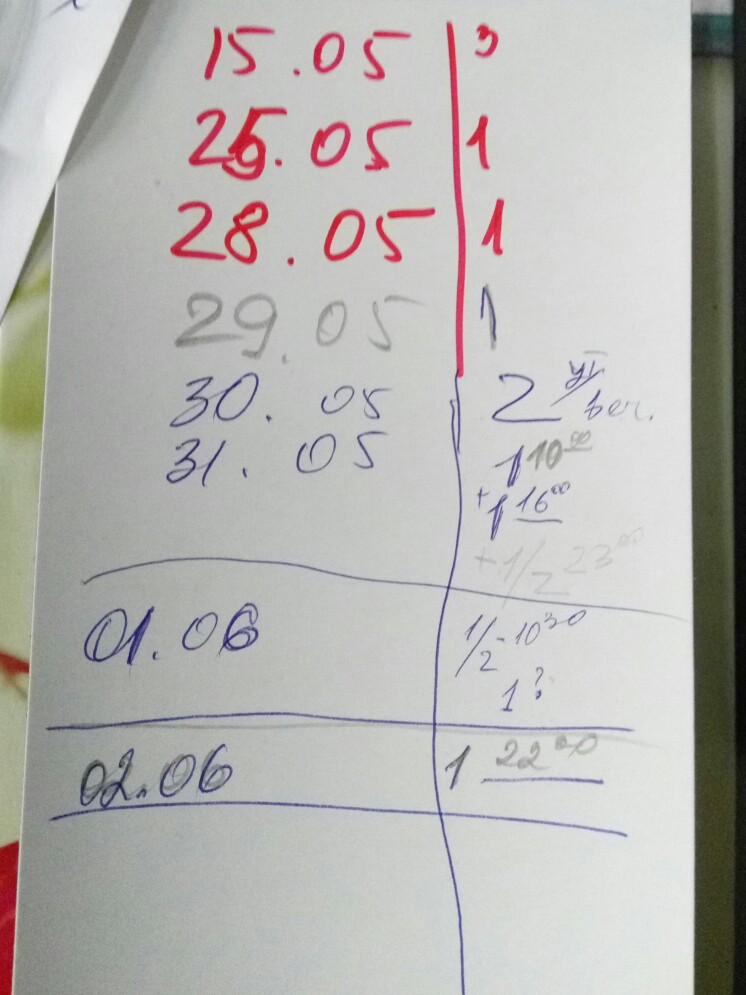 15.05 3
25.05 1
28.05 1
29.05 1
30.05 2 ут/веч.
31.05 1 10⁰⁰
+1 16⁰⁰
+1/2 23⁰⁰
01.06 1/2 - 10³⁰
1?
02.06 1 22⁰⁰